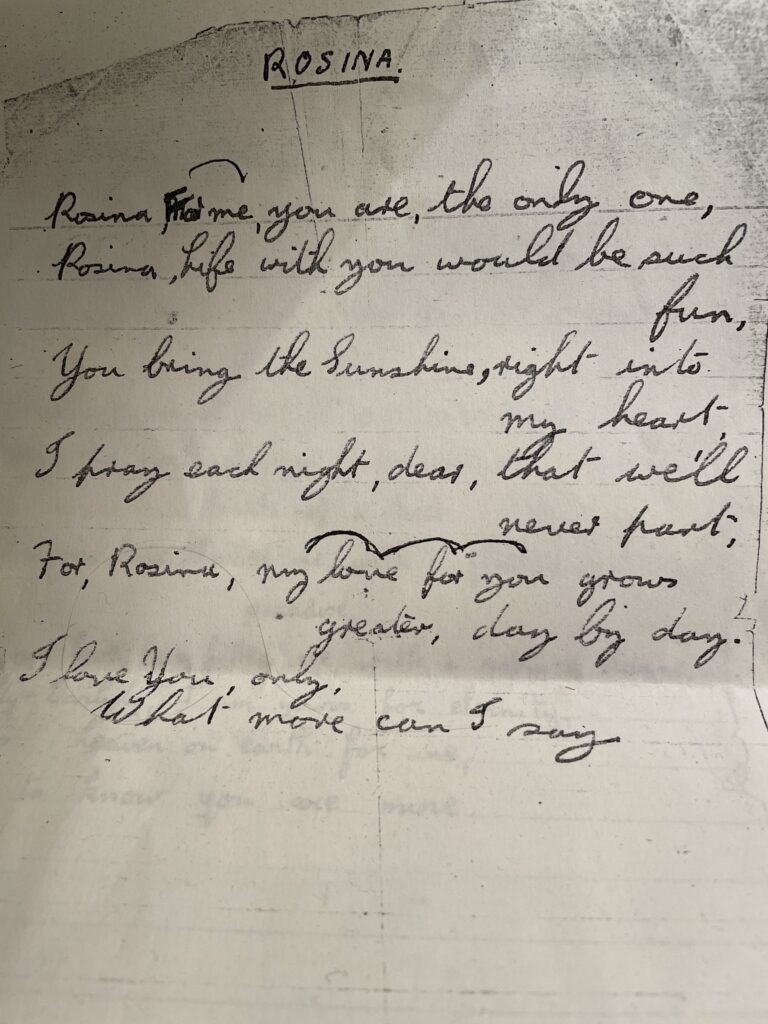 ROSINA.
Rosina, For me, you are, the only one,
Rosina, Life with you would be such
fun,
You bring the Sunshine, right into
my heart,
I pray each night, dear, that we'll
never part,
For, Rosina, my love for you grows
greater, day by day!
I love You, only,
What more can I say
for eternity
heaven on earth for me,
to know you are mine.